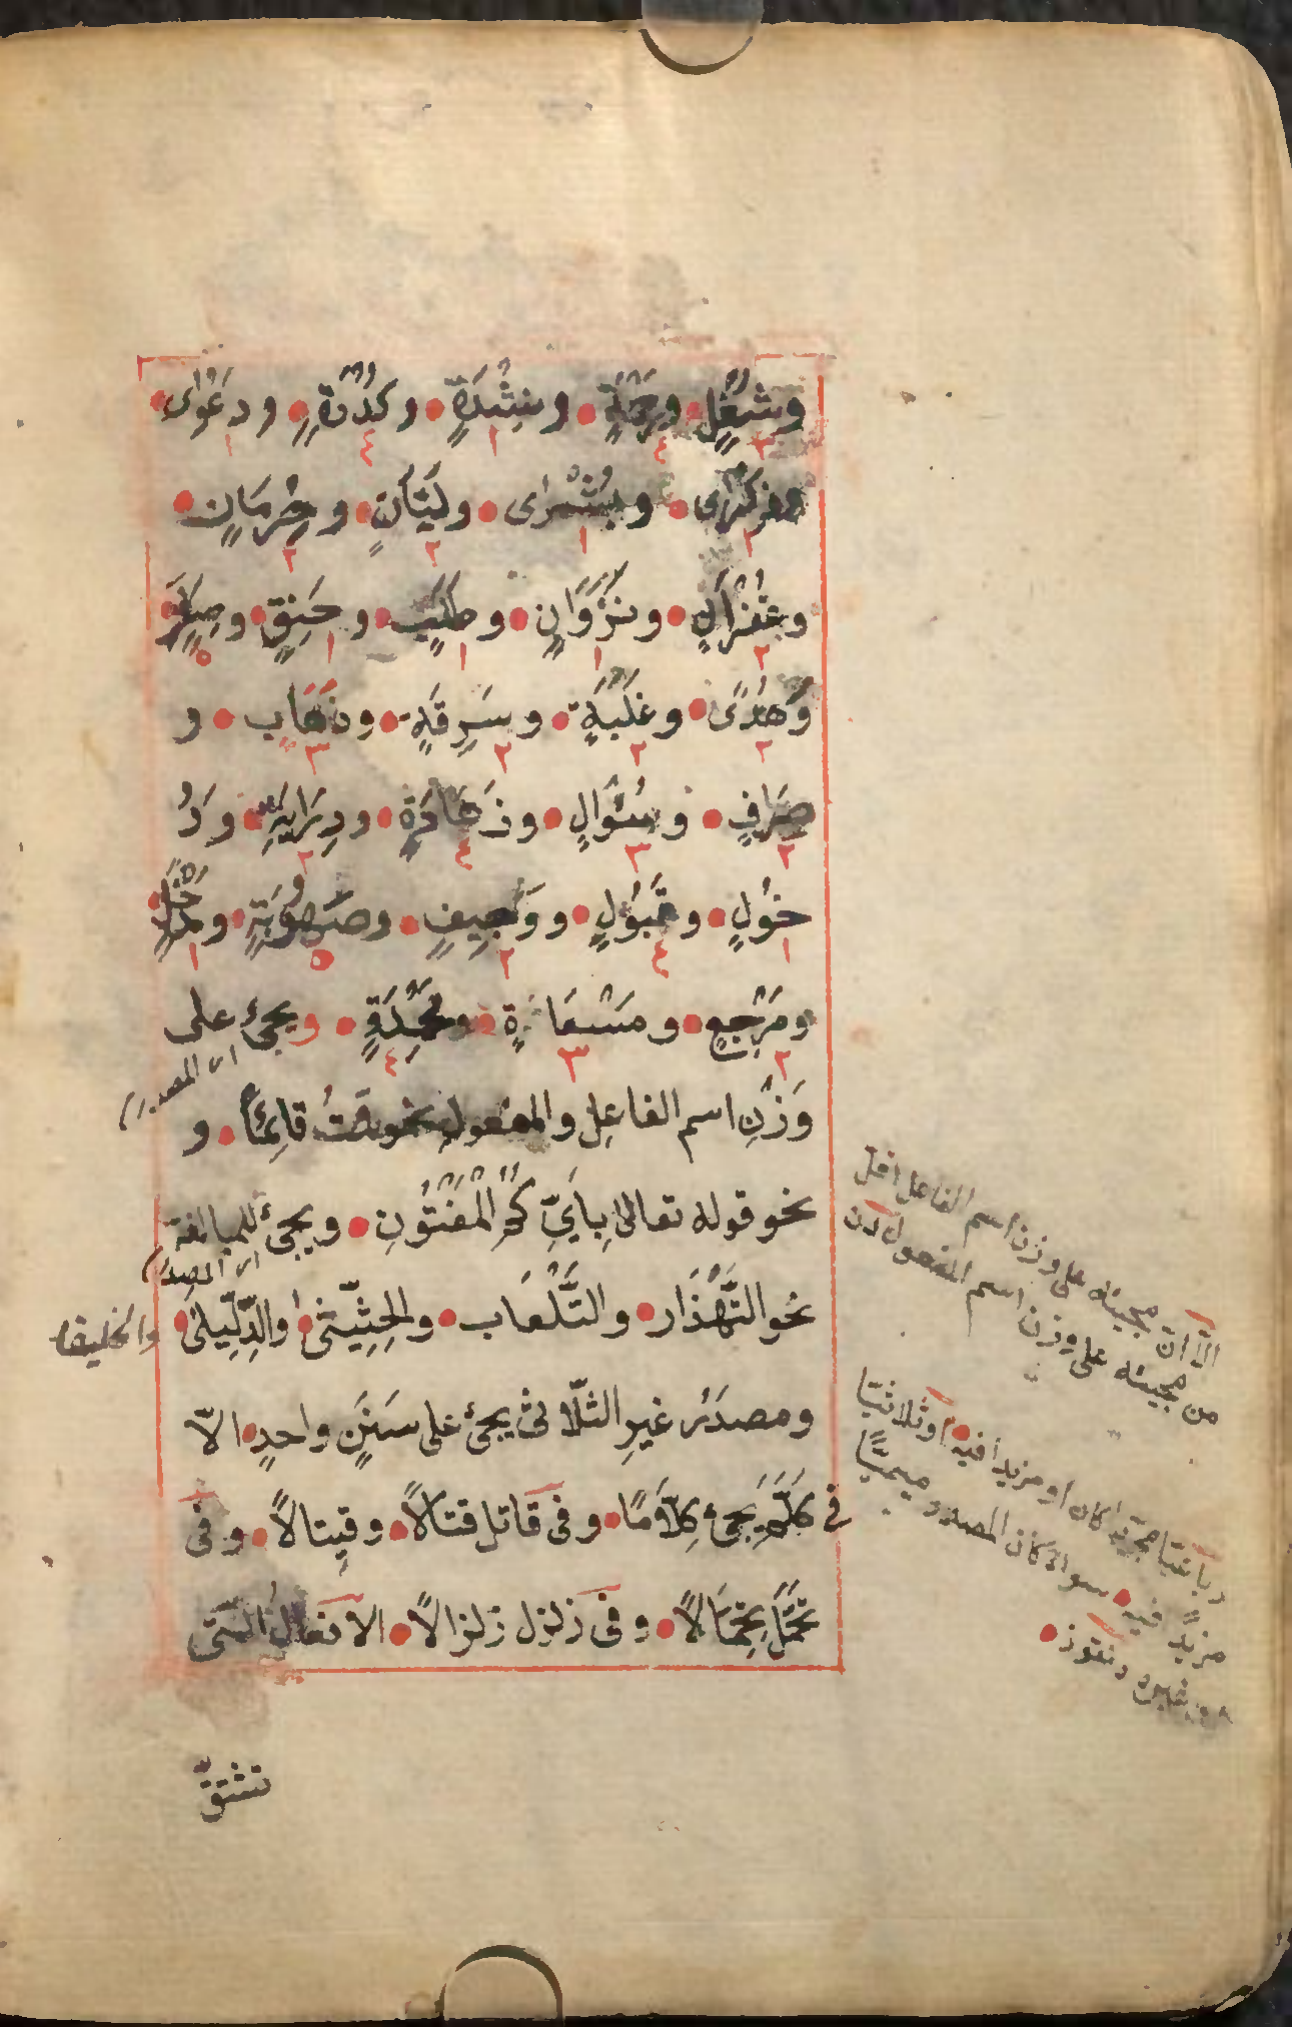 وشُغْلٍ • ورَحْمَةٍ • ونِشْدَةٍ • وكُدْرَةٍ • ودَعْوَى •
٣ ٤ ١ ٤ ١
وذِكْرَى • وبُشْرَى • ولَيَّانٍ • وحِرْمَانٍ •
٢ ١ ٢ ٢
وغُفْرَانٍ • ونَزَوَانٍ • وطَلَبٍ • وخَنِقٍ • وصِغَرٍ
٢ ١ ١ ١ ٥
وهُدًى • وغَلَبَةٍ • وسَرِقَةٍ • وذَهَابٍ • و
٢ ٢ ٢ ٣
صِرَافٍ • وسُؤَالٍ • وزَهَادَةٍ • ودِرَايَةٍ • ودُ
٢ ٣ ٤ ٢
خُولٍ • وقَبُولٍ • ووَجِيفٍ • وصُهُوبَةٍ • ومَدْخَلٍ •
١ ٤ ٢ ٥ ١
ومَرْجِعٍ • ومَسْعَاةٍ • ومَحْمِدَةٍ • ويجئ على
٢ ٣ ٤
اى المصدر
وَزْنِ اسم الفاعِلِ والمفعولِ نحو قمتُ قائِمًا • و
نحو قوله تعالى بِأَيِّكُمُ الْمَفْتُونِ • ويجئ للمبالغة
اى المصدر
نحو التَّهْذَار • والتَّلْعَاب • والحِثِّيثَى • والدِّلِّيلَى •
والخليفا
ومصدَرُ غيرِ الثلّاثى يجئ على سَنَنٍ واحدٍ • الاّ
فى كَلَّمَ يَجئ كِلَّامًا • وفى قاتل قتالاً • وقيتالاً • وفى
تَحَمَّلَ تِحِمَّالاً • وفى زلزل زلزالاً • الافعالُ الّتى
تشتقّ
الاّ انّ مجيئه على وزن اسم الفاعل اقلّ
من مجيئه على وزن اسم المفعول
رباعيّا مجرّدا كان او مزيدا فيه • او ثلاثيّا
مزيدً فيه • سواء كان المصدر ميميّا